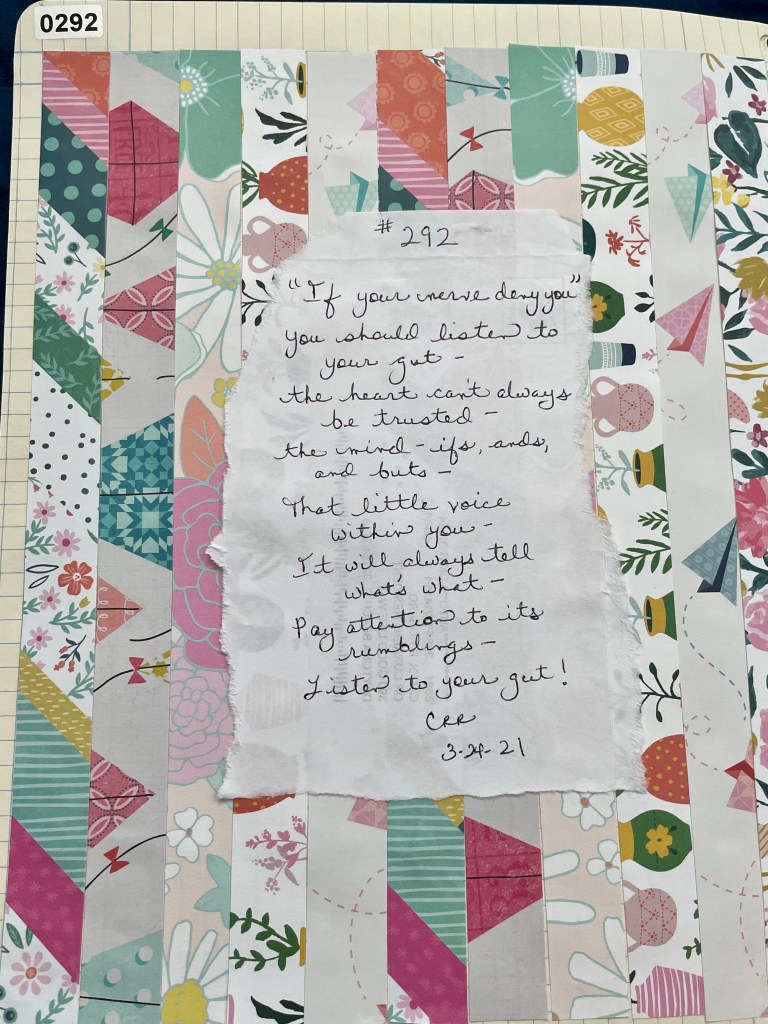 0292
# 292
"If your nerve deny you"
you should listen to
your gut –
the heart can't always
be trusted –
the mind – ifs, ands,
and buts –
That little voice
within you –
It will always tell
what's what –
Pay attention to its
rumblings –
Listen to your gut!
CRR
3-24-21